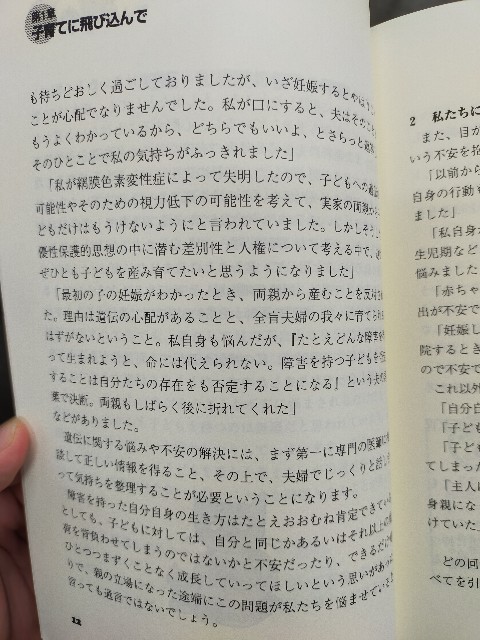 第1章
子育てに飛び込んで
も待ちどおしく過ごしておりましたが、いざ妊娠するとやはり
ことが心配でなりませんでした。私が口にすると、夫はそのこと
もうよくわかっているから、どちらでもいいよ、とさらっと
そのひとことで私の気持ちがふっきれました」
「私が網膜色素変性症によって失明したので、子どもへの
可能性やそのための視力低下の可能性を考えて、実家の両親から
どもだけはもうけないようにと言われていました。しかしそう
優性保護的思想の中に潜む差別性と人権について考える中で、
ぜひとも子どもを産み育てたいと思うようになりました」
「最初の子の妊娠がわかったとき、両親から産むことを反対
た。理由は遺伝の心配があることと、全盲夫婦の我々に育てられ
はずがないということ。私自身も悩んだが、『たとえどんな障害を
って生まれようと、命には代えられない。障害を持つ子どもを
することは自分たちの存在をも否定することになる！という夫の
葉で決断。両親もしばらく後に折れてくれた」
などがありました。
遺伝に関する悩みや不安の解決には、まず第一に専門の医師に
談して正しい情報を得ること、その上で、夫婦でじっくりと話し
って気持ちを整理することが必要ということになります。
障害を持った自分自身の生き方はたとえおおむね肯定できてい
としても、子どもに対しては、自分と同じかあるいはそれ以上の
荷を背負わせてしまうのではないかと不安だったり、できるだけ
ひとつまずくことなく成長していってほしいという思いがあ
りで、親の立場になった途端にこの問題が私たちを悩ませていると
言っても過言ではないでしょう。
12
2 私たちに
また、目が
いう不安を
「以前から
自身の行動
ました」
「私自身
生児期など
悩みました
「赤ちゃ
出が不安で
「妊娠し
院するとき
ので不安で
これ以外
「自分自
「子ども
「子ども
てしまった
「主人に
身親にな
けていた」
どの回
べてを引